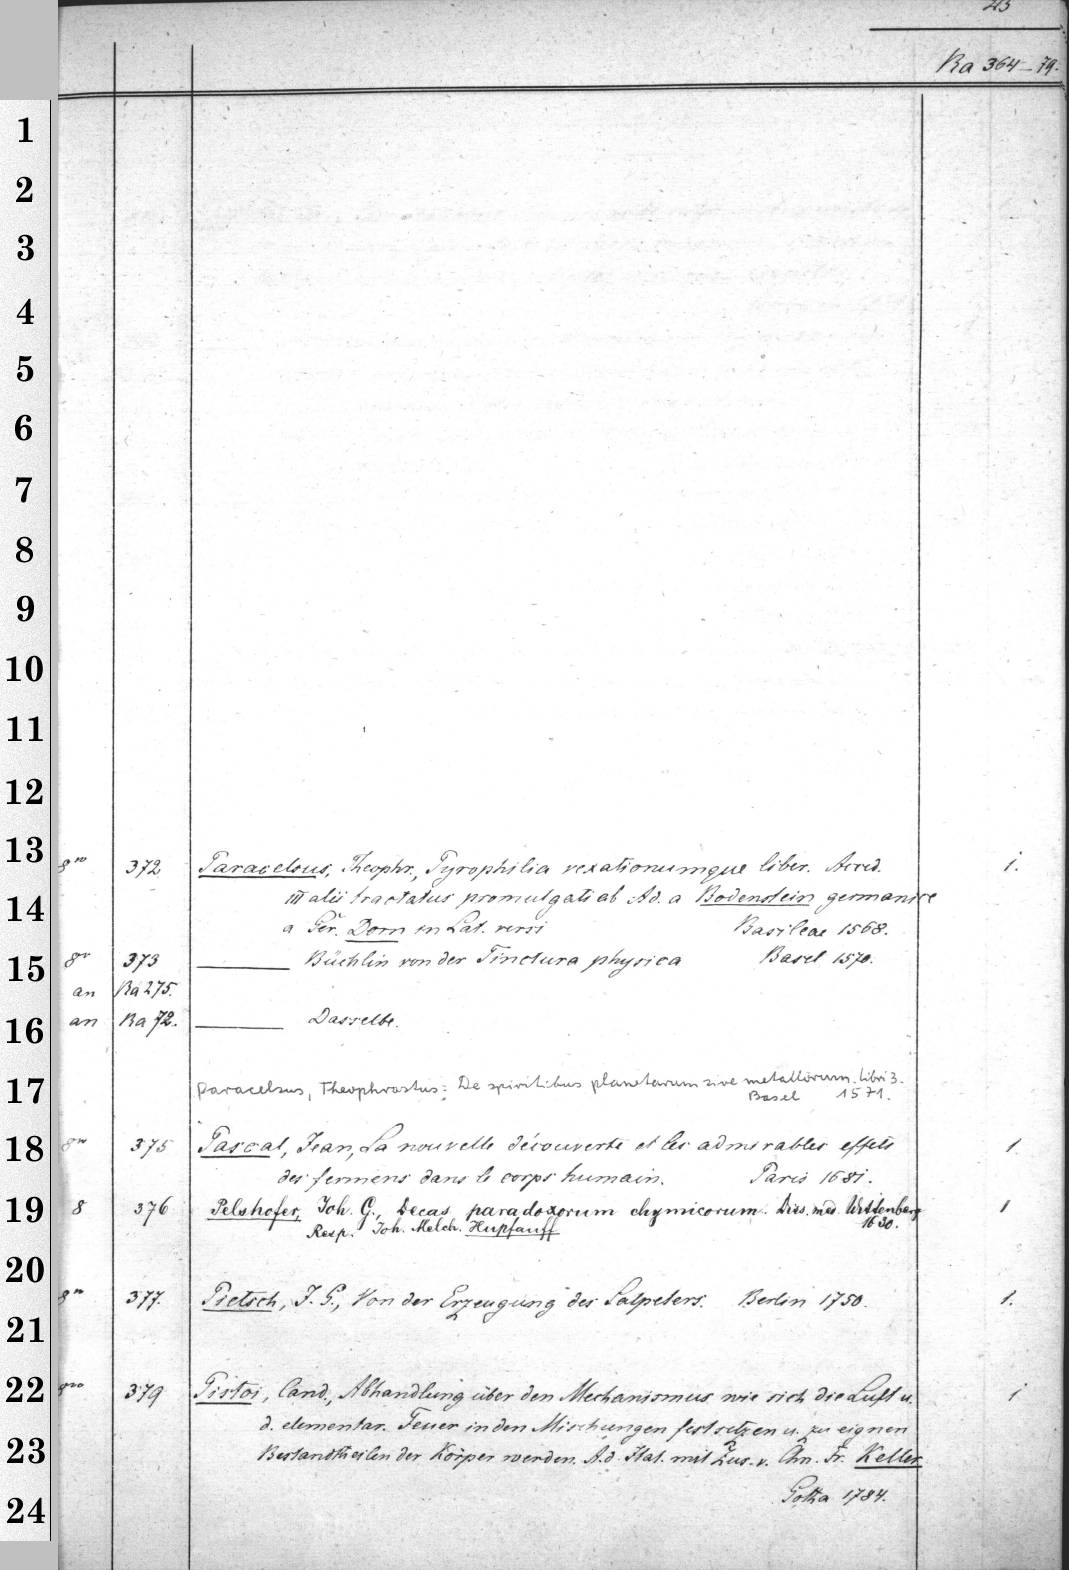 Ra 364-79.
1
2
3
4
5
6
7
8
9
10
11
12
13
8vo 372 Paracelsus, Theophr., Pyrophilia vexationumque liber. Acced. 1.
14
III alii tractatus promulgati ab Ad. a Bodenstein germanice
a Ger. Dorn in Lat. versi Basileae 1568.
15
8vo 373 ——— Büchlin von der Tinctura physica Basel 1570.
an Ra 275.
16
an Ra 72. ——— Dasselbe.
17
Paracelsus, Theophrastus: De spiritibus planetarum sive metallorum libri 3.
Basel 1571.
18
8vo 375 Pascal, Jean, La nouvelle découverte et les admirables effets 1
des fermens dans le corps humain. Paris 1681.
19
8 376 Pelshofer, Joh. G., Decas paradoxorum chymicorum. Diss. med. Wittenberg 1
Resp. Joh. Melch. Hupfauff 1630.
20
8vo 377. Pietsch, J. G., Von der Erzeugung des Salpeters. Berlin 1750. 1.
21
22
8vo 379 Pistoi, Cand., Abhandlung über den Mechanismus wie sich die Luft u. 1
d. elementar. Feuer in den Mischungen festsetzen u. zu eignen
23
Bestandtheilen der Körper werden. A. d. Ital. mit Zus. v. Chn. Fr. Keller
24
Gotha 1784.